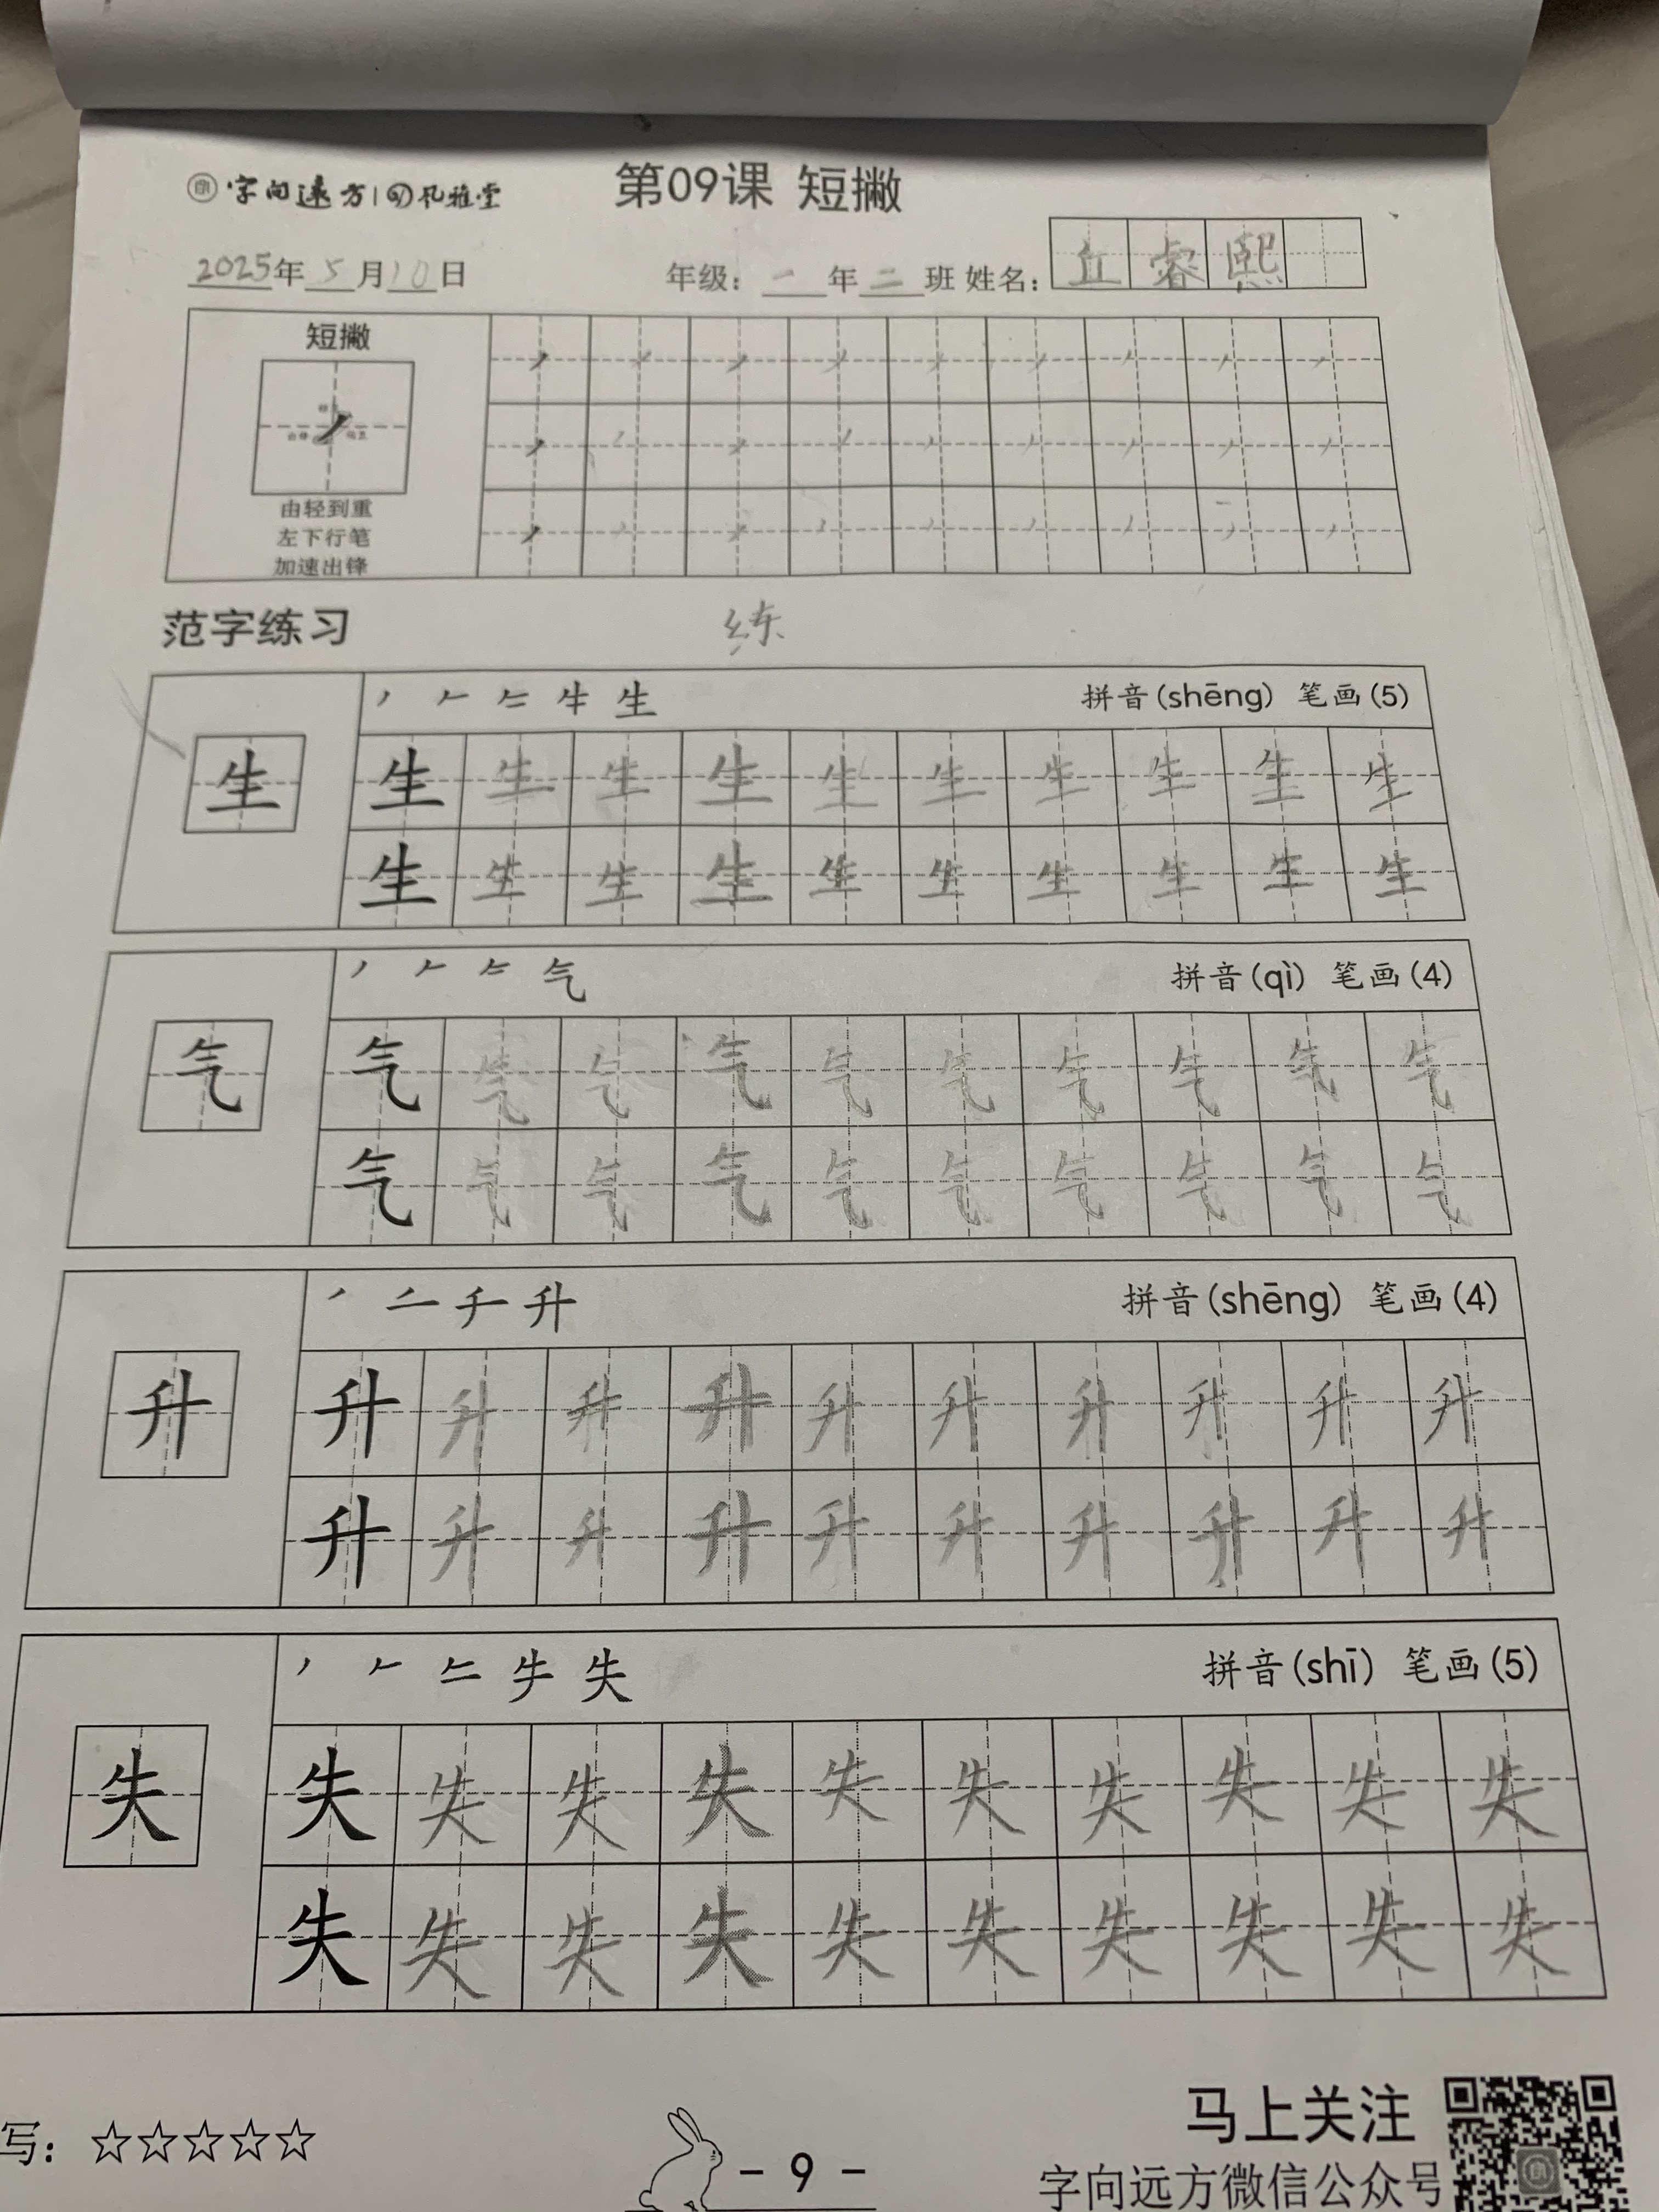 字向远方 孔雅堂 第09课 短撇
2025年5月10日 年级：一年二班 姓名：丘睿熙
短撇
由轻到重
左下行笔
加速出锋
范字练习 练
生 拼音(shēng) 笔画(5)
生 生 生 生 生 生 生 生 生 生 生
生 生 生 生 生 生 生 生 生 生
气 拼音(qì) 笔画(4)
气 气 气 气 气 气 气 气 气 气 气
气 气 气 气 气 气 气 气 气 气
升 拼音(shēng) 笔画(4)
升 升 升 升 升 升 升 升 升 升 升
升 升 升 升 升 升 升 升 升 升
失 拼音(shī) 笔画(5)
失 失 失 失 失 失 失 失 失 失 失
失 失 失 失 失 失 失 失 失 失
写：☆☆☆☆☆
- 9 -
马上关注
字向远方微信公众号